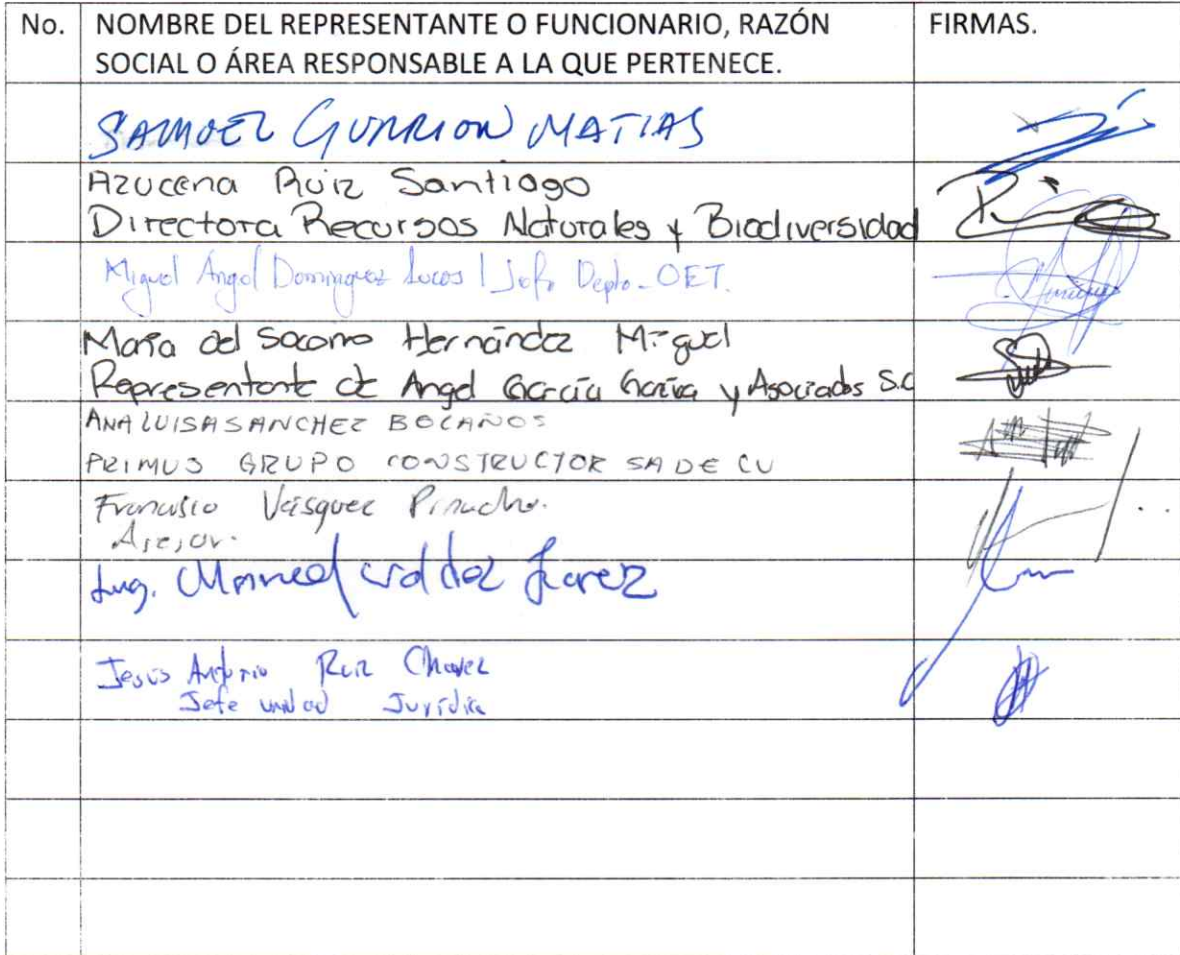 No. NOMBRE DEL REPRESENTANTE O FUNCIONARIO, RAZÓN FIRMAS.
SOCIAL O ÁREA RESPONSABLE A LA QUE PERTENECE.
SAMUEL GURRION MATIAS
Azucena Ruiz Santiago
Directora Recursos Naturales y Biodiversidad
Miguel Angel Dominguez Lucas | Jefe Depto. OET.
María del Socorro Hernández Miguel
Representante de Angel García García y Asociados S.C
ANA LUISA SANCHEZ BOLAÑOS
PRIMUS GRUPO CONSTRUCTOR SA DE CV
Francisco Vásquez Pinacho.
Asesor.
Ing. Manuel Valdez Juarez
Jesús Antonio Ruiz Chavez
Jefe unidad Jurídica